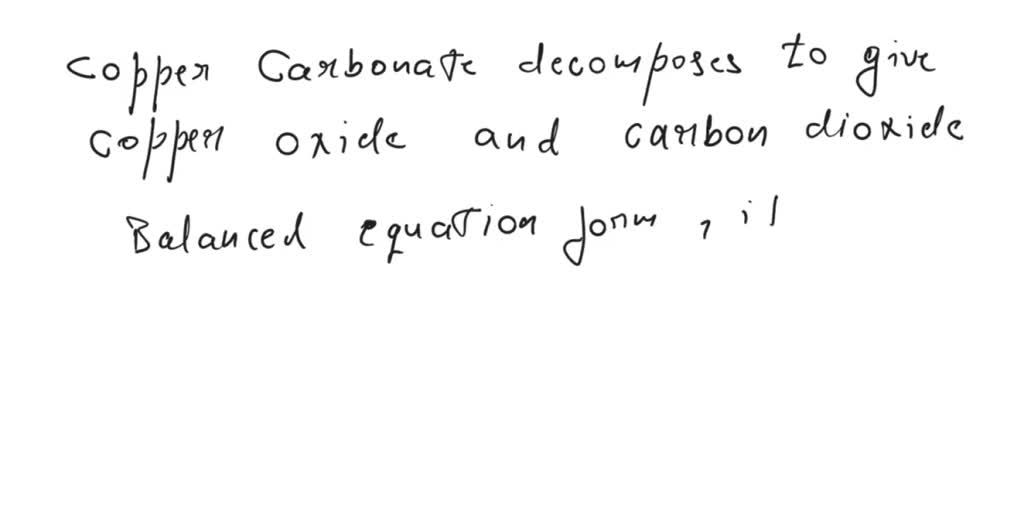 Copper Carbonate decomposes to give
Copper oxide and carbon dioxide
Balanced equation form, il